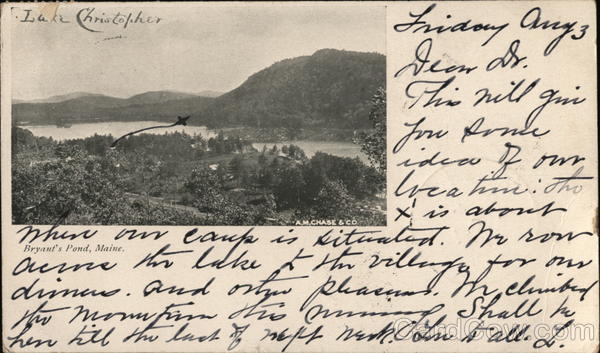 Lake Christopher
Friday Aug 3
Dear Dr.
This will give
you some
idea of our
location: the
x is about
A.M. CHASE & CO.
Bryant's Pond, Maine.
where our camp is situated. We row
across the lake to the village for our
dinners. and other pleasures. We climbed
the mountain this morning Shall be
here till the last of next week. Love to all. L.
CardCow.com